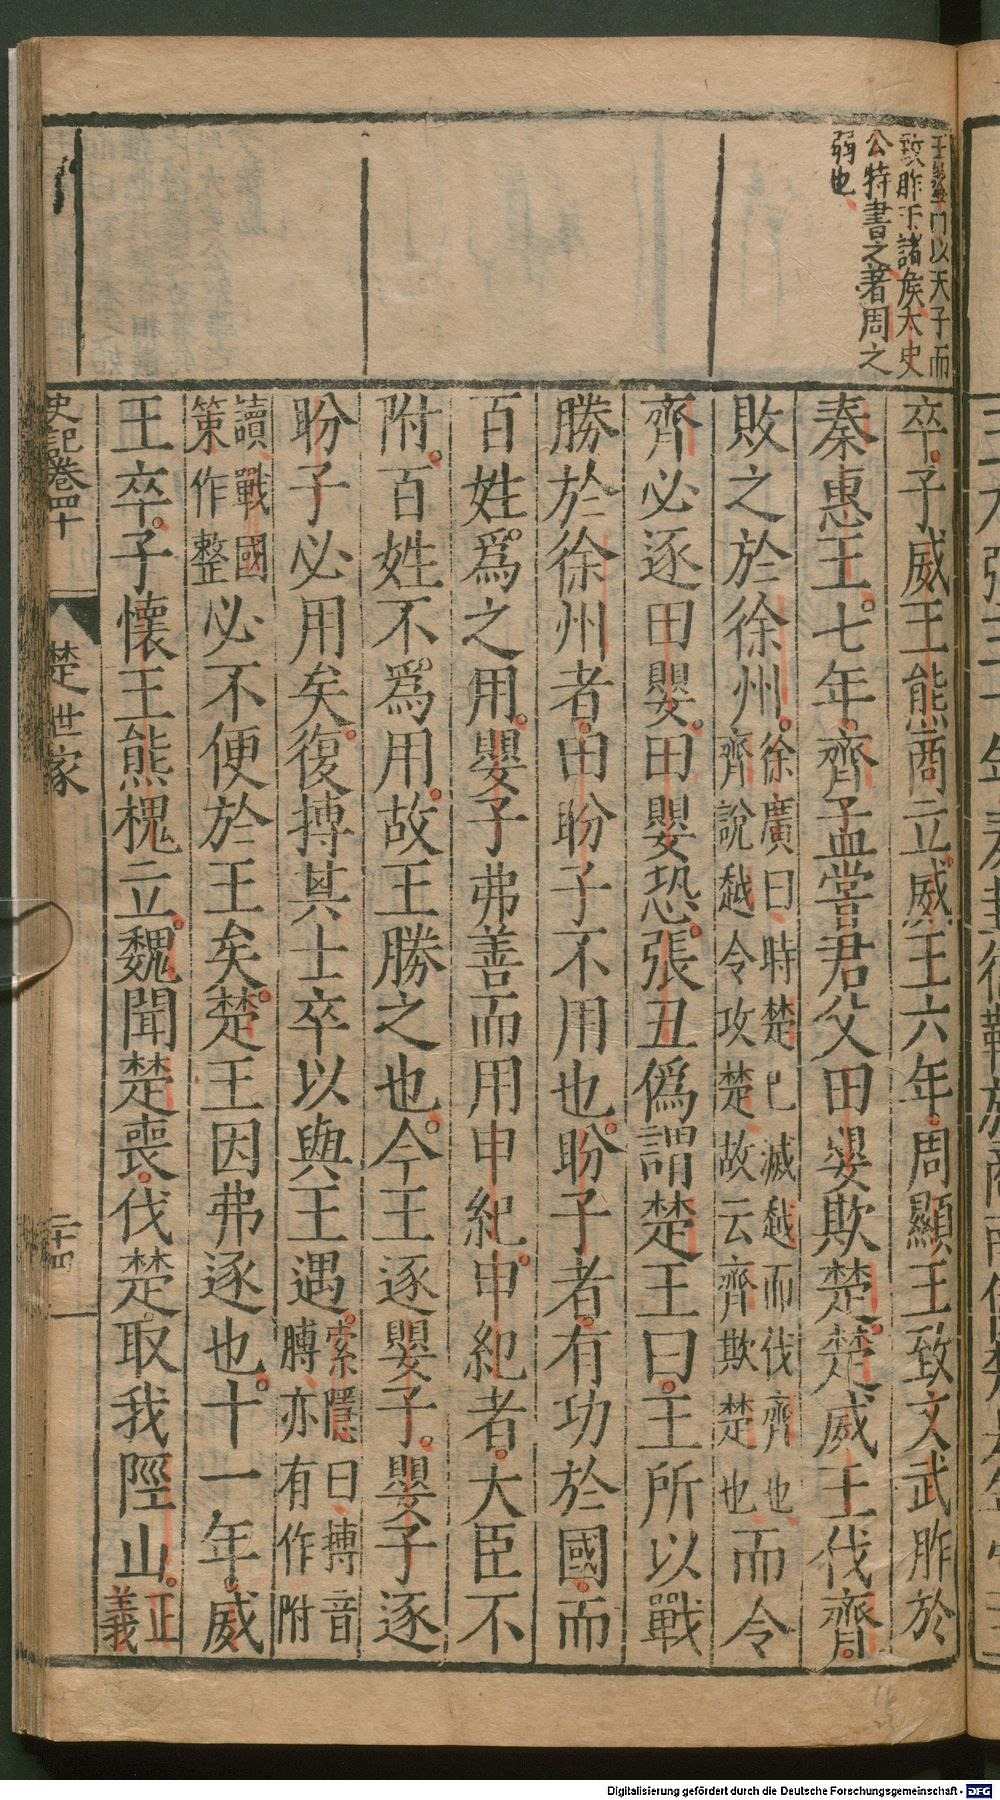 王夢門以天子而
致胙下諸侯太史
公特書之著周之
弱也
卒子威王熊商立威王六年周顯王致文武胙於
秦惠王七年齊孟嘗君父田嬰欺楚楚威王伐齊
敗之於徐州徐廣曰時楚已滅越而伐齊也齊說越令攻楚故云齊欺楚也而令
齊必逐田嬰田嬰恐張丑僞謂楚王曰王所以戰
勝於徐州者田盼子不用也盼子者有功於國而
百姓爲之用嬰子弗善而用申紀申紀者大臣不
附百姓不爲用故王勝之也今王逐嬰子嬰子逐
盼子必用矣復搏其士卒以與王遇索隱曰搏音膊亦有作附
讀戰國策作整必不便於王矣楚王因弗逐也十一年威
王卒子懷王熊槐立魏聞楚喪伐楚取我陘山正義
史記卷四十
楚世家
二十四
Digitalisierung gefördert durch die Deutsche Forschungsgemeinschaft - DFG